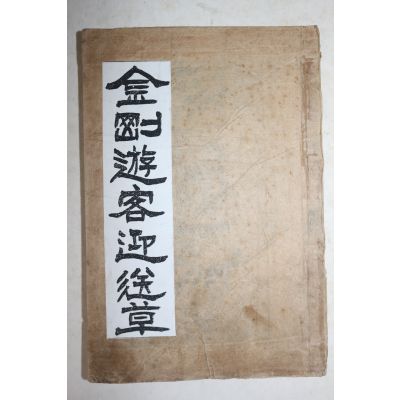 金剛遊客迎送草